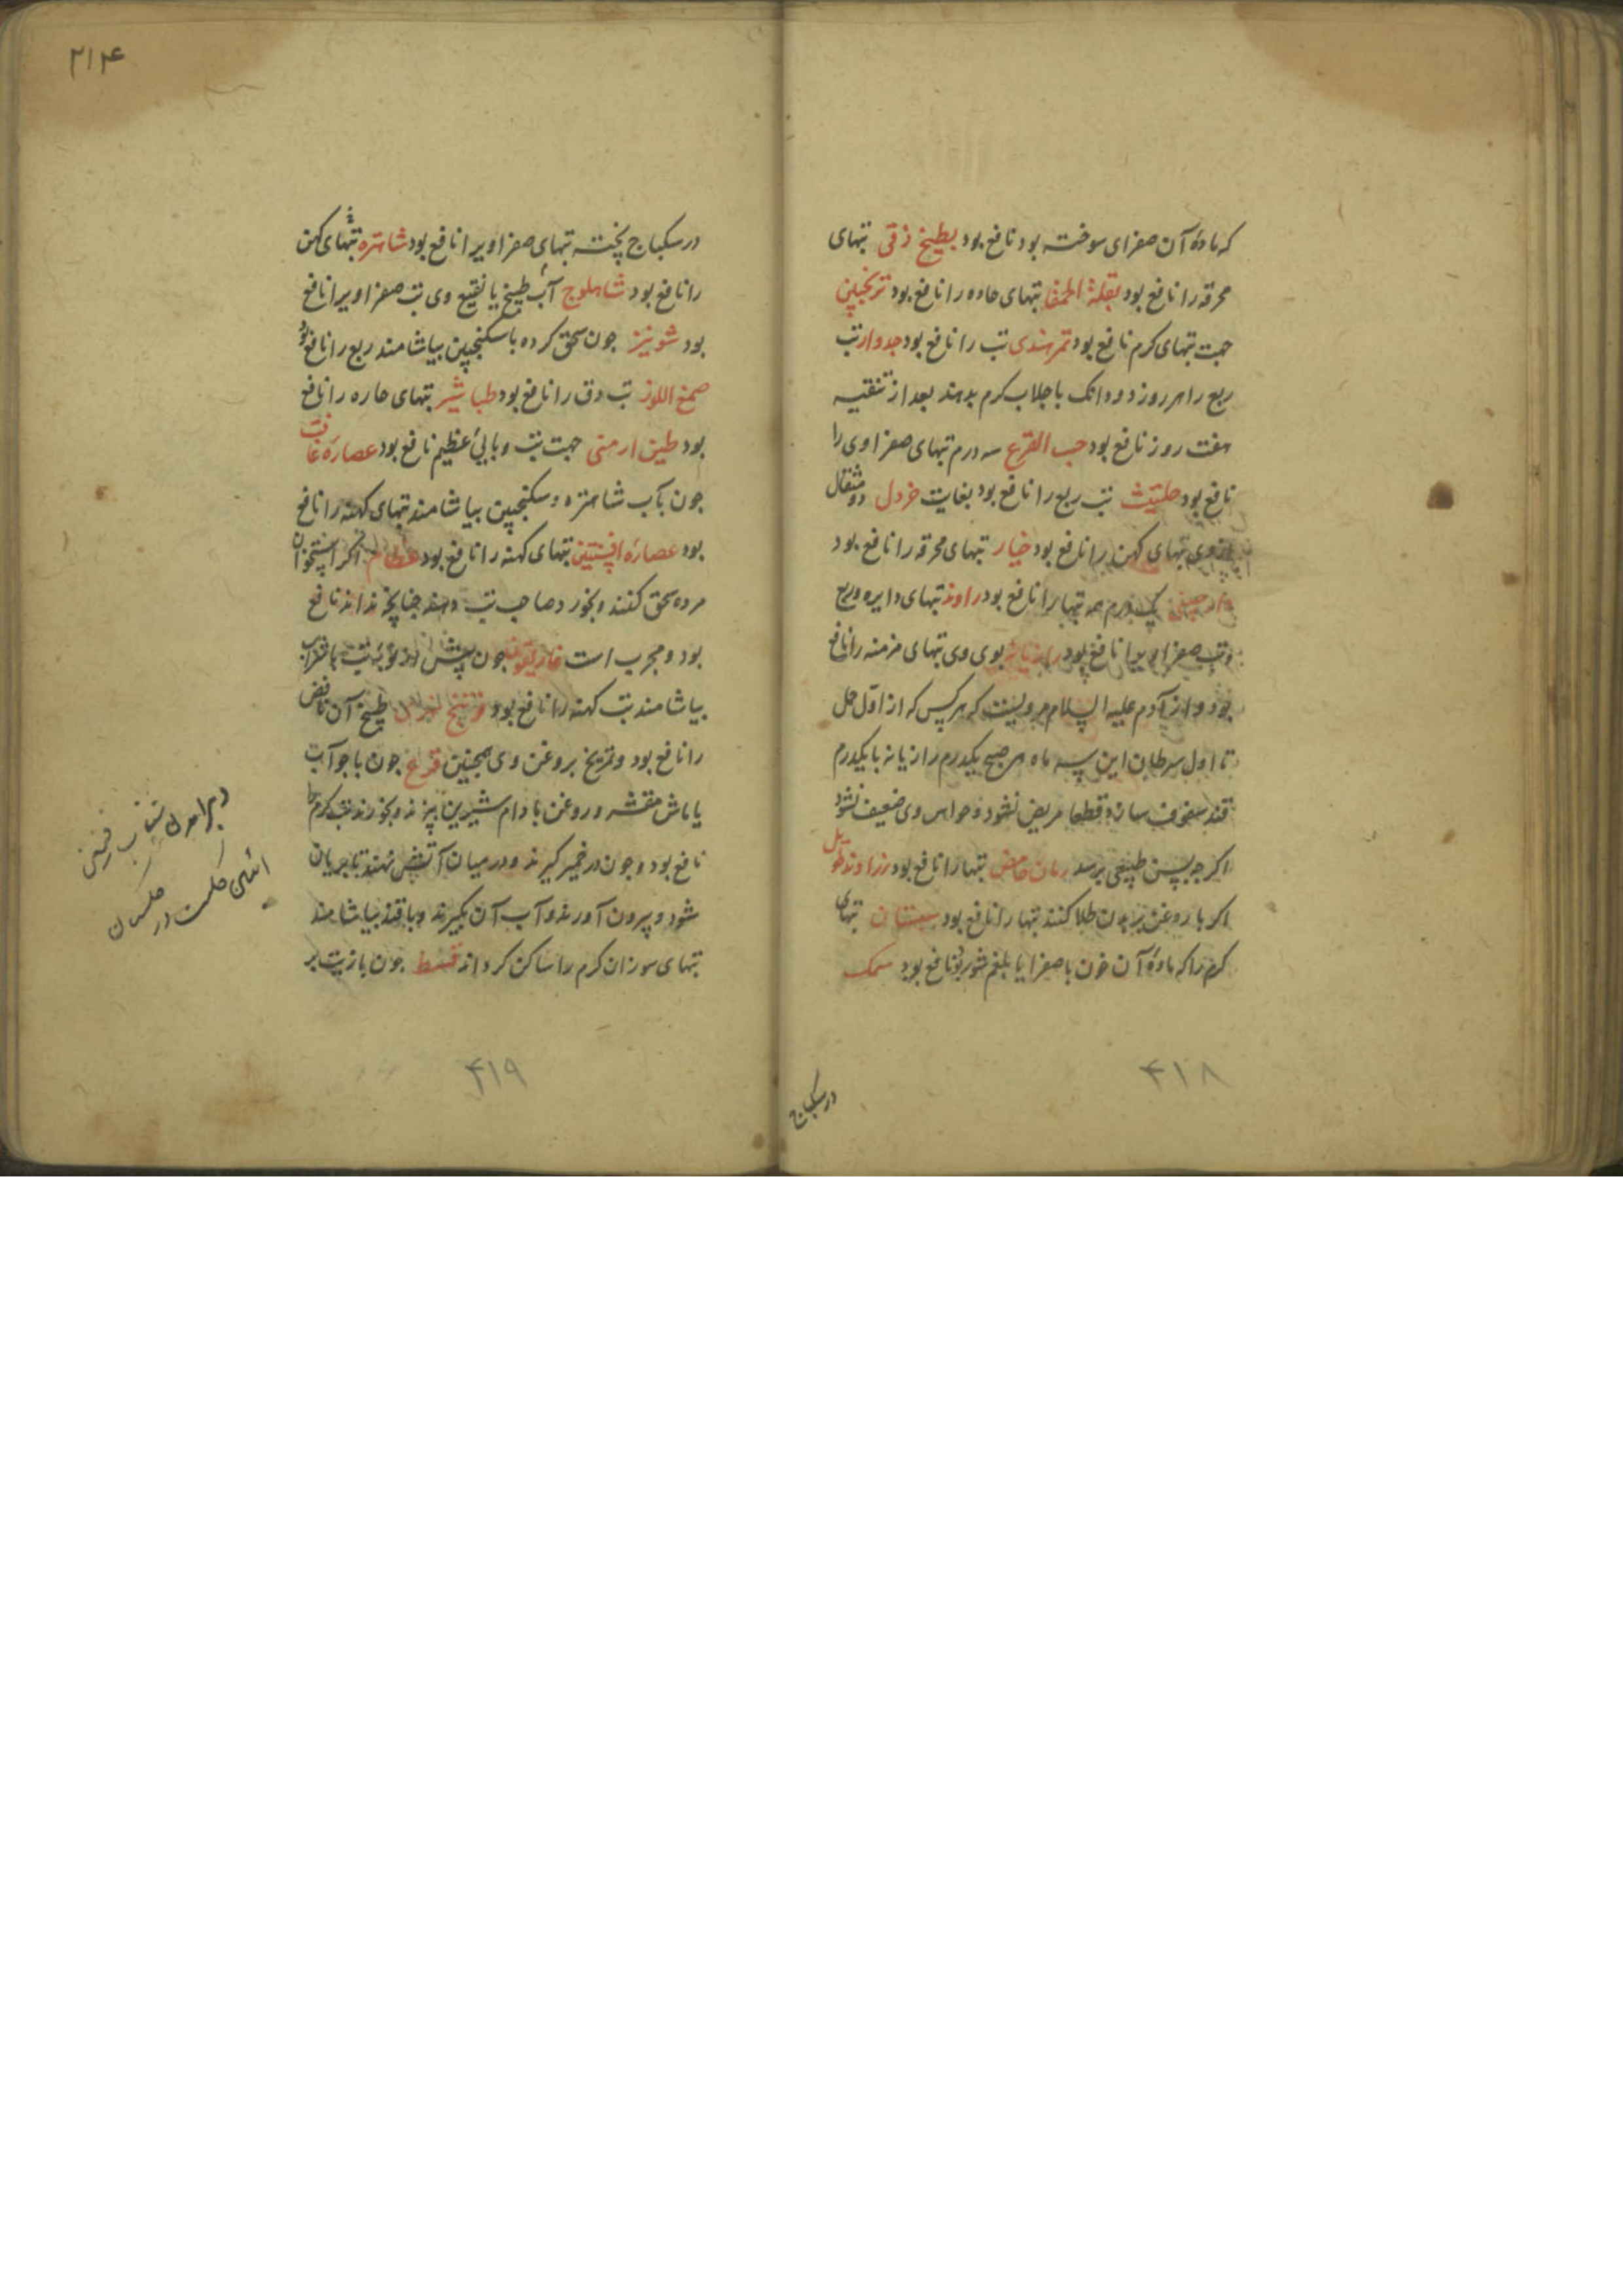 که مادهٔ آن صفرای سوخته بود نافع بود بطیخ زقی تبهای
محرقه را نافع بود بقلة الحمقا تبهای حاده را نافع بود ترنجبین
جهت تبهای کرم نافع بود تمر هندی تب را نافع بود جدوار تب
ربع را هر روز دو دانک با جلاب کرم بدهند بعد از تنقیه
هفت روز نافع بود حب القرع سه درم تبهای صفراوی را
نافع بود حلتیت تب ربع را نافع بود بغایت خردل دو مثقال
از وی تبهای کهن را نافع بود خیار تبهای محرقه را نافع بود
دارچینی یک درم همه تبها را نافع بود راوند تبهای دایره و ربع
و تب صفراویرا نافع بود رازیانه بوی وی تبهای مزمنه را نافع
بود و از آدم علیه السلام مرویست که هر کس که از اول حمل
تا اول سرطان این سه ماه هر صبح یکدرم رازیانه با یکدرم
قند سفوف سازد قطعا مریض نشود و حواس وی ضعیف نشود
اکر چه بسن طبیعی برسد رمان حامض تبها را نافع بود زراوند طویل
اکر با روغن بر بدن طلا کنند تبها را نافع بود سپستان تبهای
کرم را که مادهٔ آن خون با صفرا یا بلغم شور بود نافع بود سمک
در سکباج
۴۱۸
۲۱۴
در سکباج پخته تبهای صفراویرا نافع بود شاهتره تبهای کهن
را نافع بود شاهلوج آب طبیخ یا نقیع وی تب صفراویرا نافع
بود شونیز جون سحق کرده با سکنجبین بیاشامند ربع را نافع بود
صمغ اللوز تب دق را نافع بود طباشیر تبهای حاره را نافع
بود طین ارمنی جهت تب وبایی عظیم نافع بود عصارهٔ غافث
جون بآب شاهتره و سکنجبین بیاشامند تبهای کهنه را نافع
بود عصارهٔ افسنتین تبهای کهنه را نافع بود عظام اکر استخوان
مرده سحق کنند و بخورد صاحب تب دهند چنانچه نداند نافع
بود و مجرب است غاریقون جون پیش از نوبهٔ تب با شراب
بیاشامند تب کهنه را نافع بود طبیخ آن نافض
را نافع بود و تمریخ بروغن وی همچنین قرع جون با جو آب
یا ماش مقشر و روغن بادام شیرین بپزند و بخورند تب کرم را
نافع بود و جون در خمیر کیرند و در میان آتش نهند تا بریان
شود و بیرون آورند و آب آن بکیرند و با قند بیاشامند
تبهای سوزان کرم را ساکن کرداند قسط جون با زیت بر
۴۱۹